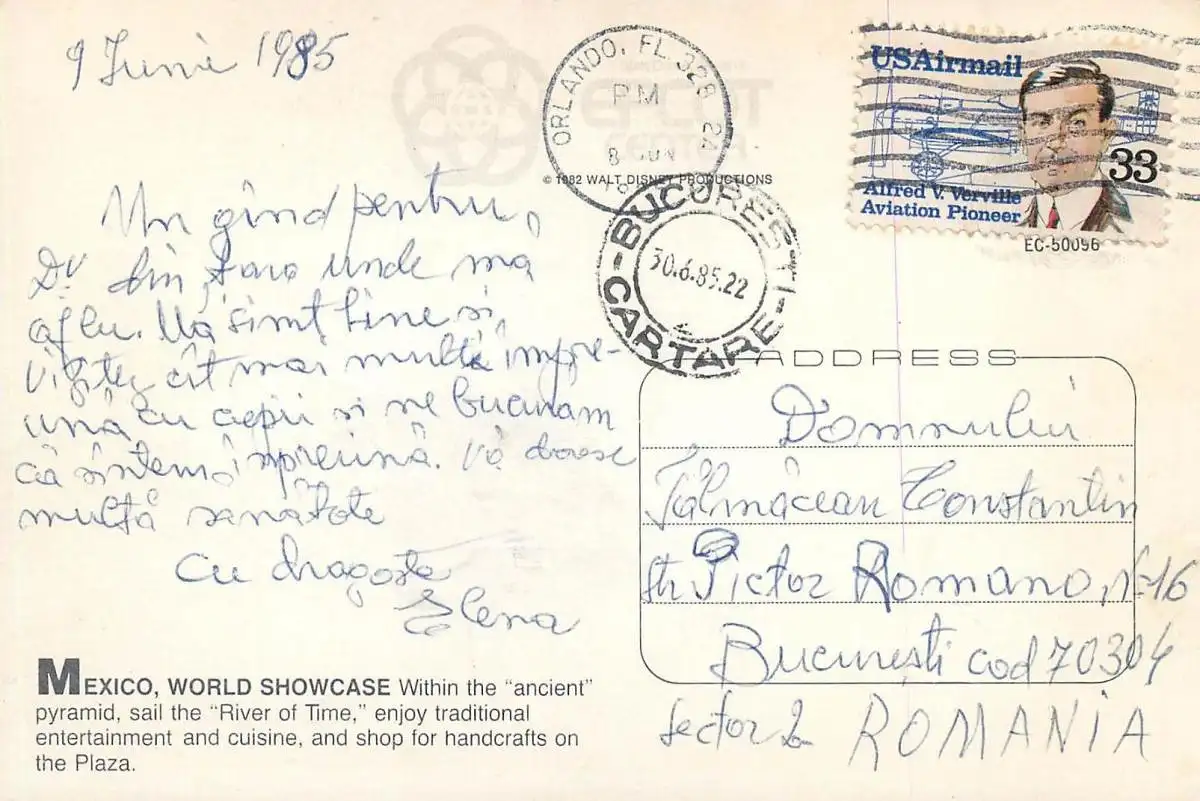 9 Iunie 1985
EPCOT
CENTER
© 1982 WALT DISNEY PRODUCTIONS
ORLANDO, FL 328 24
PM
8 JUN
BUCUREȘTI
30.6.85.22
CARTARE
USAirmail
33
Alfred V. Verville
Aviation Pioneer
EC-50096
Un gînd pentru
Dv din țara unde mă
aflu. Mă simt bine și
vizitez cît mai multă împre-
ună cu copii și ne bucuram
că sîntem împreună. Vă doresc
multă sanatate
Cu dragoste
Elena
MEXICO, WORLD SHOWCASE Within the "ancient"
pyramid, sail the "River of Time," enjoy traditional
entertainment and cuisine, and shop for handcrafts on
the Plaza.
ADDRESS
Domnului
Tălmăcean Constantin
str Pictor Romano, 16
București cod 70304
sector 2 ROMANIA